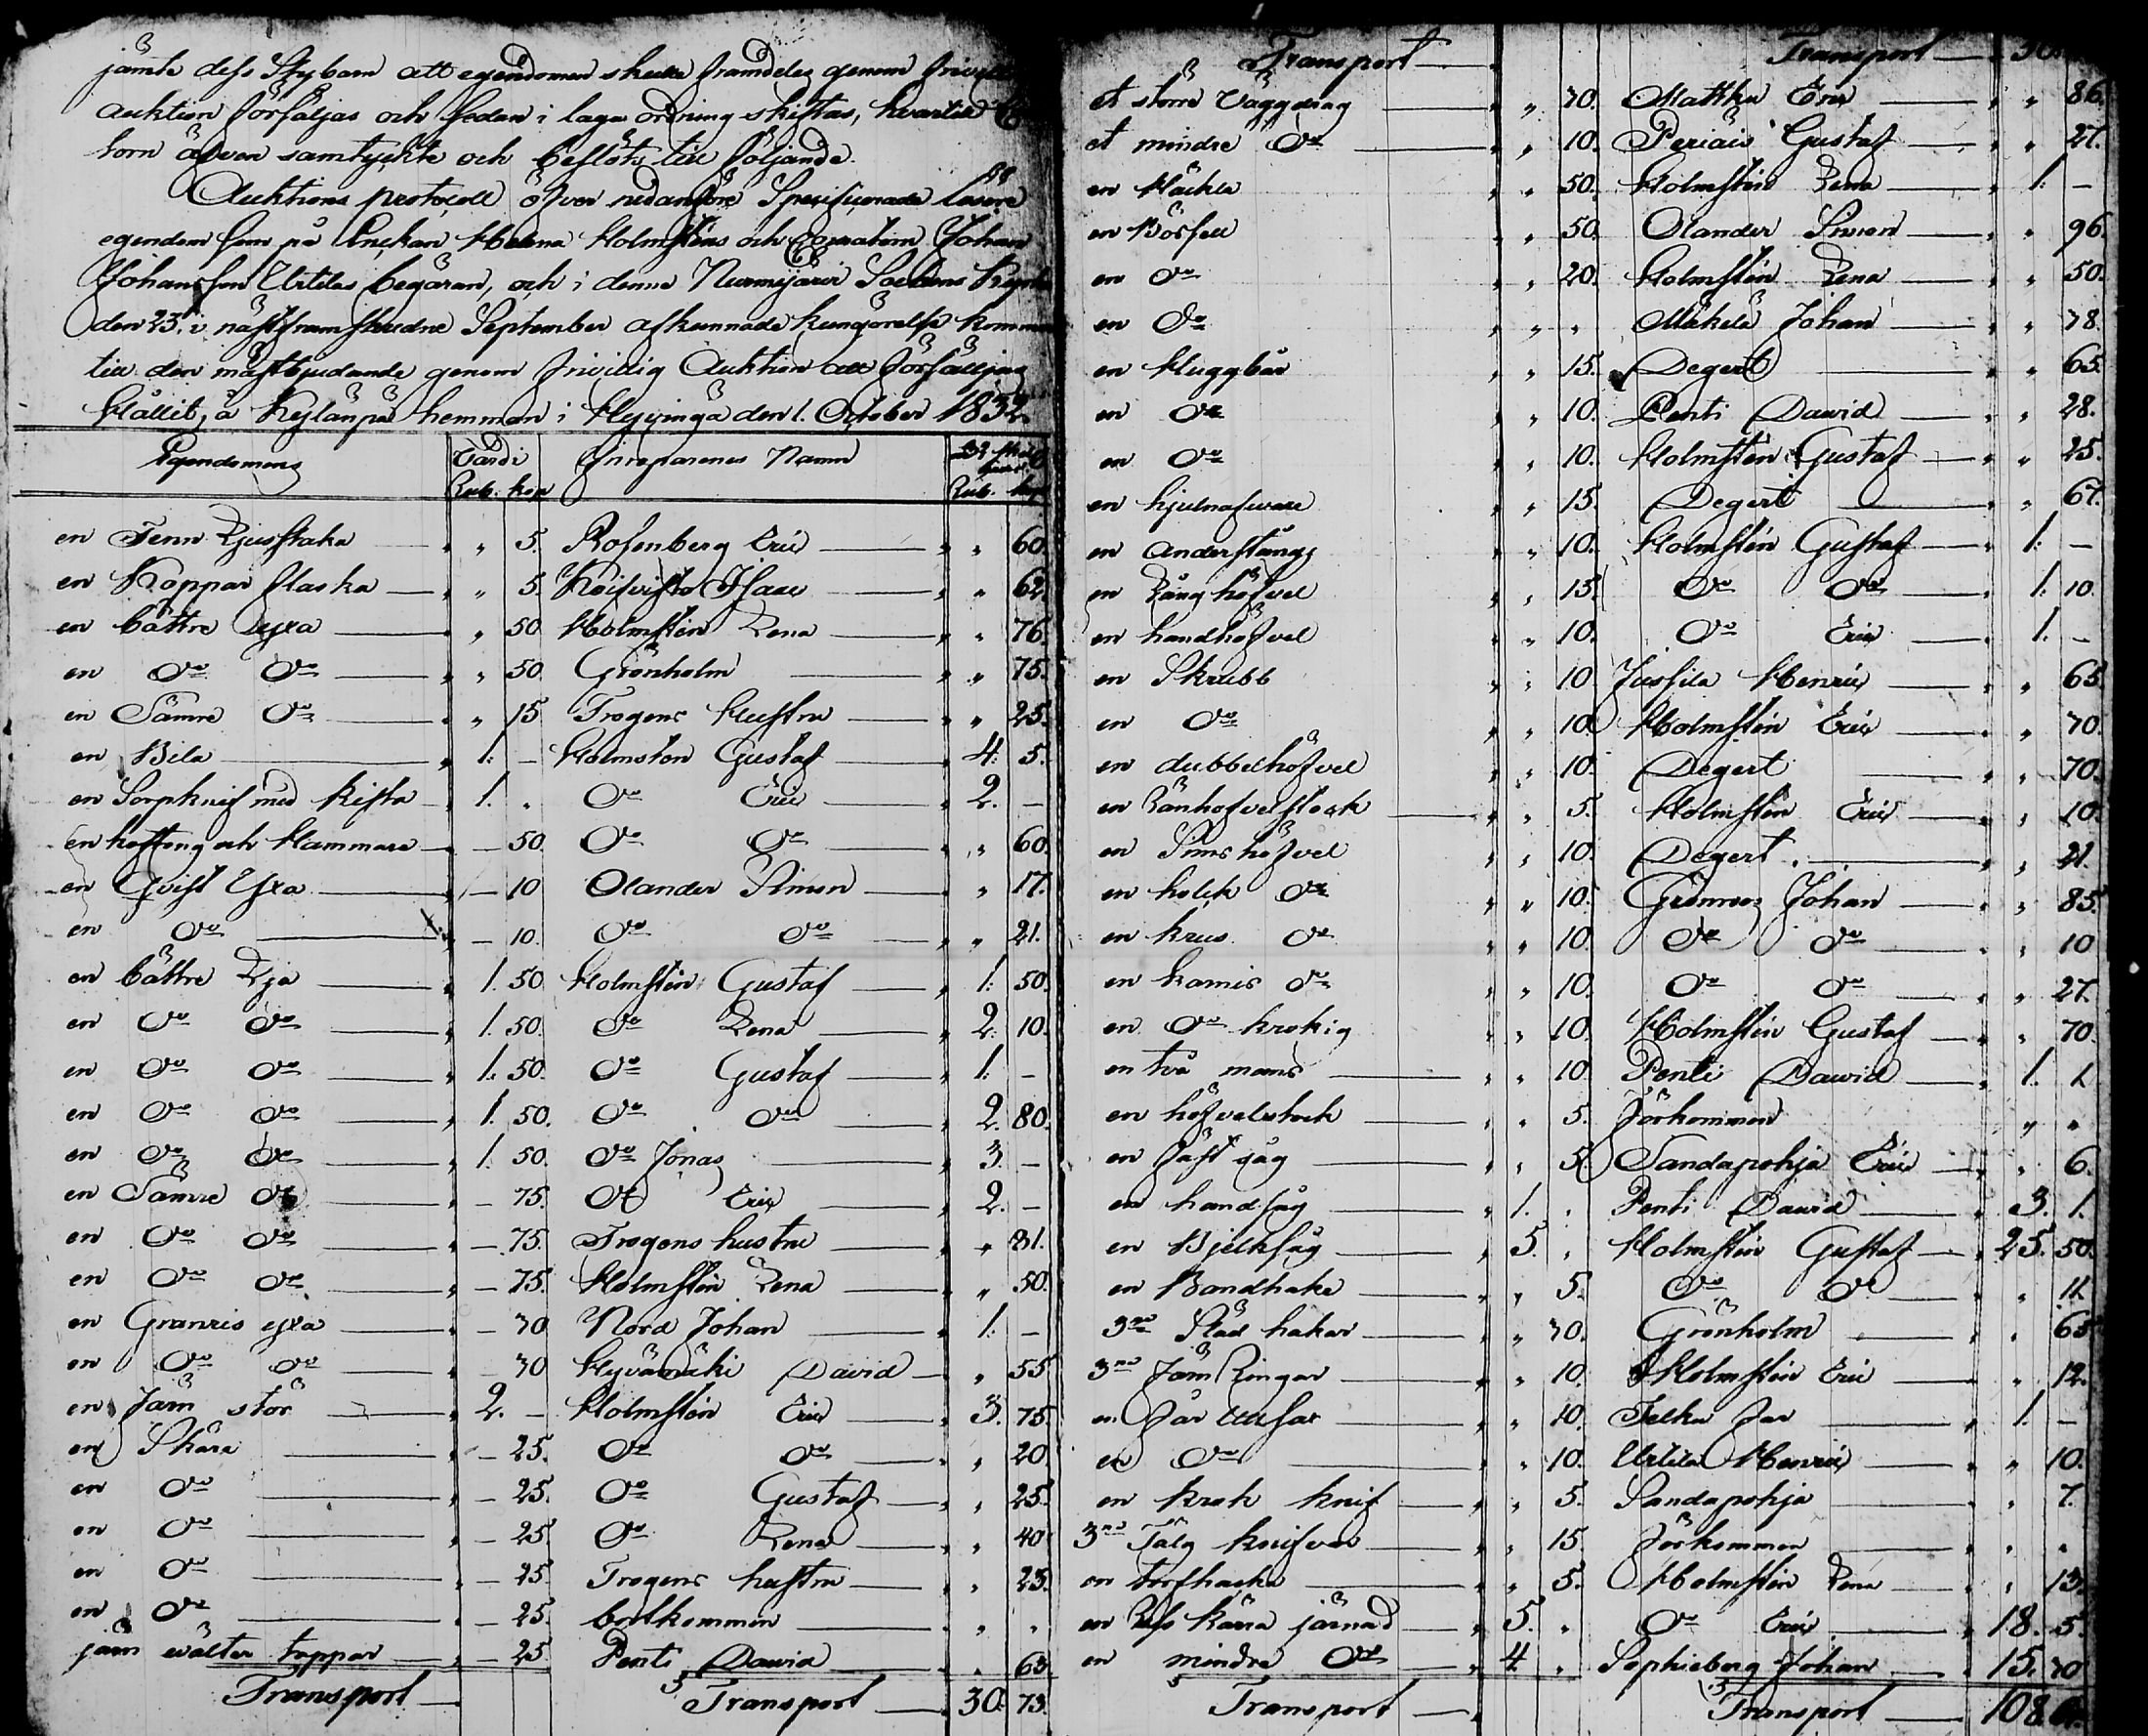 jämte dess Styvbarn att egendomen skulle framdeles genom
auktion försäljas och sedan i laga ordning skiftas, hvartill
torn äfven samtyckte och beslöts till följande.
Auktions protocoll öfver nedanföre Specificerade lösöre
egendom som på Enckan Helena Holmsténs och Johan
Johansson Uotilas begäran, och i denna Nurmijärvi Sockens
den 25, i nästframskredne September afkunnade kungörelse kommer
till den mästbjudande genom friwillig Auktion att försälljas
Hållit, å Kylänpä hemman i Hyvingä den 1. October 1832.
Egendomens Värde Inroparenes Namn
Rub. kop Rub. kop
en Tenn Ljusstaka " 5. Rosenberg Eric " 60.
en Koppar flaska " 5. Koifvisto Isaac " 62.
en bättre yxa " 50 Holmstén Lena " 76.
en Do Do " 50. Grönholm " 75.
en Sämre Do " 15 Trogens Hustru " 25.
en Bila 1. - Holmsten Gustaf 4. 5.
en Sorpknif med kista 1. " Do Eric 2. -
en hoftong och Hammare - 50. Do Do " 60.
en Qvist Yxa - 10 Olander Simon " 17.
en Do - 10. Do Do " 21.
en bättre Lja 1. 50. Holmstén Gustaf 1. 50.
en Do Do 1. 50. Do Lena 2. 10.
en Do Do 1. 50. Do Gustaf 1. -
en Do Do 1. 50. Do Do 2. 80.
en Do Do 1. 50. Do Jonas 3. -
en Sämre Do - 75. Do Eric 2. -
en Do Do - 75. Trogens hustru " 81.
en Do Do - 75. Holmstén Lena " 50.
en Granris yxa - 30 Nord Johan 1. -
en Do Do - 30 Hyvämäki David " 55
en Järn stör 2. - Holmstén Eric 3. 75.
en Skära - 25. Do Do " 20.
en Do - 25. Do Gustaf " 25.
en Do - 25. Do Lena " 40
en Do - 25. Trogens hustru " 23.
en Do - 25. bortkommin " "
järn wälter tappar - 25 Penti David " 63.
Transport Transport 30. 73.
Transport Transport
et större Väggdrag " 30. Mattka Eric " 86.
et mindre Do " 10. Periais Gustaf " 27.
en Häckla " 50. Holmstén Lena 1. -
en Bösfell " 50. Olander Simon " 96.
en Do " 20. Holmstén Lena " 50.
en Do " " Mäkelä Johan " 78.
en Huggbär " 15. Degert " 65.
en Do " 10. Penti David " 28.
en Do " 10. Holmstén Gustaf " 25.
en hjulnafware " 15. Degert " 67.
en Anderstångs " 10. Holmstén Gustaf 1. -
en Lång höfvel " 15. Do Do 1. 10.
en handhöfvel " 10. Do Eric 1. -
en Skrubb " 10. Jussila Henric " 65.
en Do " 10. Holmstén Eric " 70.
en dubbelhöfvel " 10. Degert " 70.
en Länhofvelstock " 5. Holmstén Eric " 10.
en Simshöfvel " 10. Degert " 21.
en holck Do " 10. Grönroos Johan " 85.
en krus Do " 10. Do Do " 10
en karnis Do " 10. Do Do " 27.
en Do krokig " 10. Holmstén Gustaf " 70.
en två mans " 10. Penti David 1. 1.
en höfvelstock " 5. förkommen " "
en fåst såg " 5. Sandapohja Eric " 6.
en handsåg 1. " Penti David 3. 1.
en Bjelksåg 5. " Holmstén Gustaf 25. 50.
en Bandhake " 5. Do Do " 11.
3ne Släd hakar " 30. Grönholm " 65
3ne Järn Ringar " 10. Holmstén Eric " 12.
en får ullsax " 10. 1. -
en Do " 10. Uotila Henric " 10.
en krok knif " 5. Sandapohja " 7.
3ne Tälg knifvar " 15. förkommen " "
en torfhacka " 5. Holmstén Lena " 13.
en Kärra järnad 5. " Do Eric 18. 5.
en mindre Do 4. " Sophieberg Johan 15. 70
Transport Transport 108.